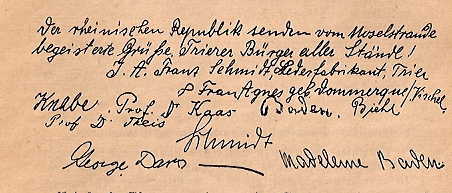 Der rheinischen Republik senden vom Moselstrande
begeisterte Grüße, Trierer Bürger aller Stände!
J. A. Franz Schmidt, Lederfabrikant, Trier
Fran Agnes geb. Dommergue/Kichel
Knabe. Prof. Dr Kaas Baden, Biehl
Prof Dr
Schmidt
George Dars Madeleine Baden